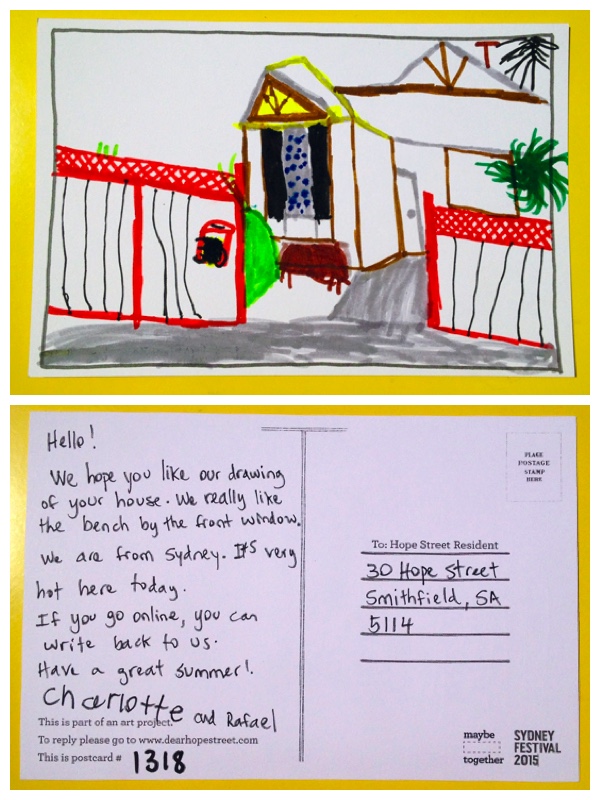 Hello!
We hope you like our drawing
of your house. We really like
the bench by the front window.
We are from Sydney. It's very
hot here today.
If you go online, you can
write back to us.
Have a great summer!.
Charlotte and Rafael
This is part of an art project.
To reply please go to www.dearhopestreet.com
This is postcard # 1318
PLACE
POSTAGE
STAMP
HERE
To: Hope Street Resident
30 Hope Street
Smithfield, SA
5114
maybe
together
SYDNEY
FESTIVAL
2015